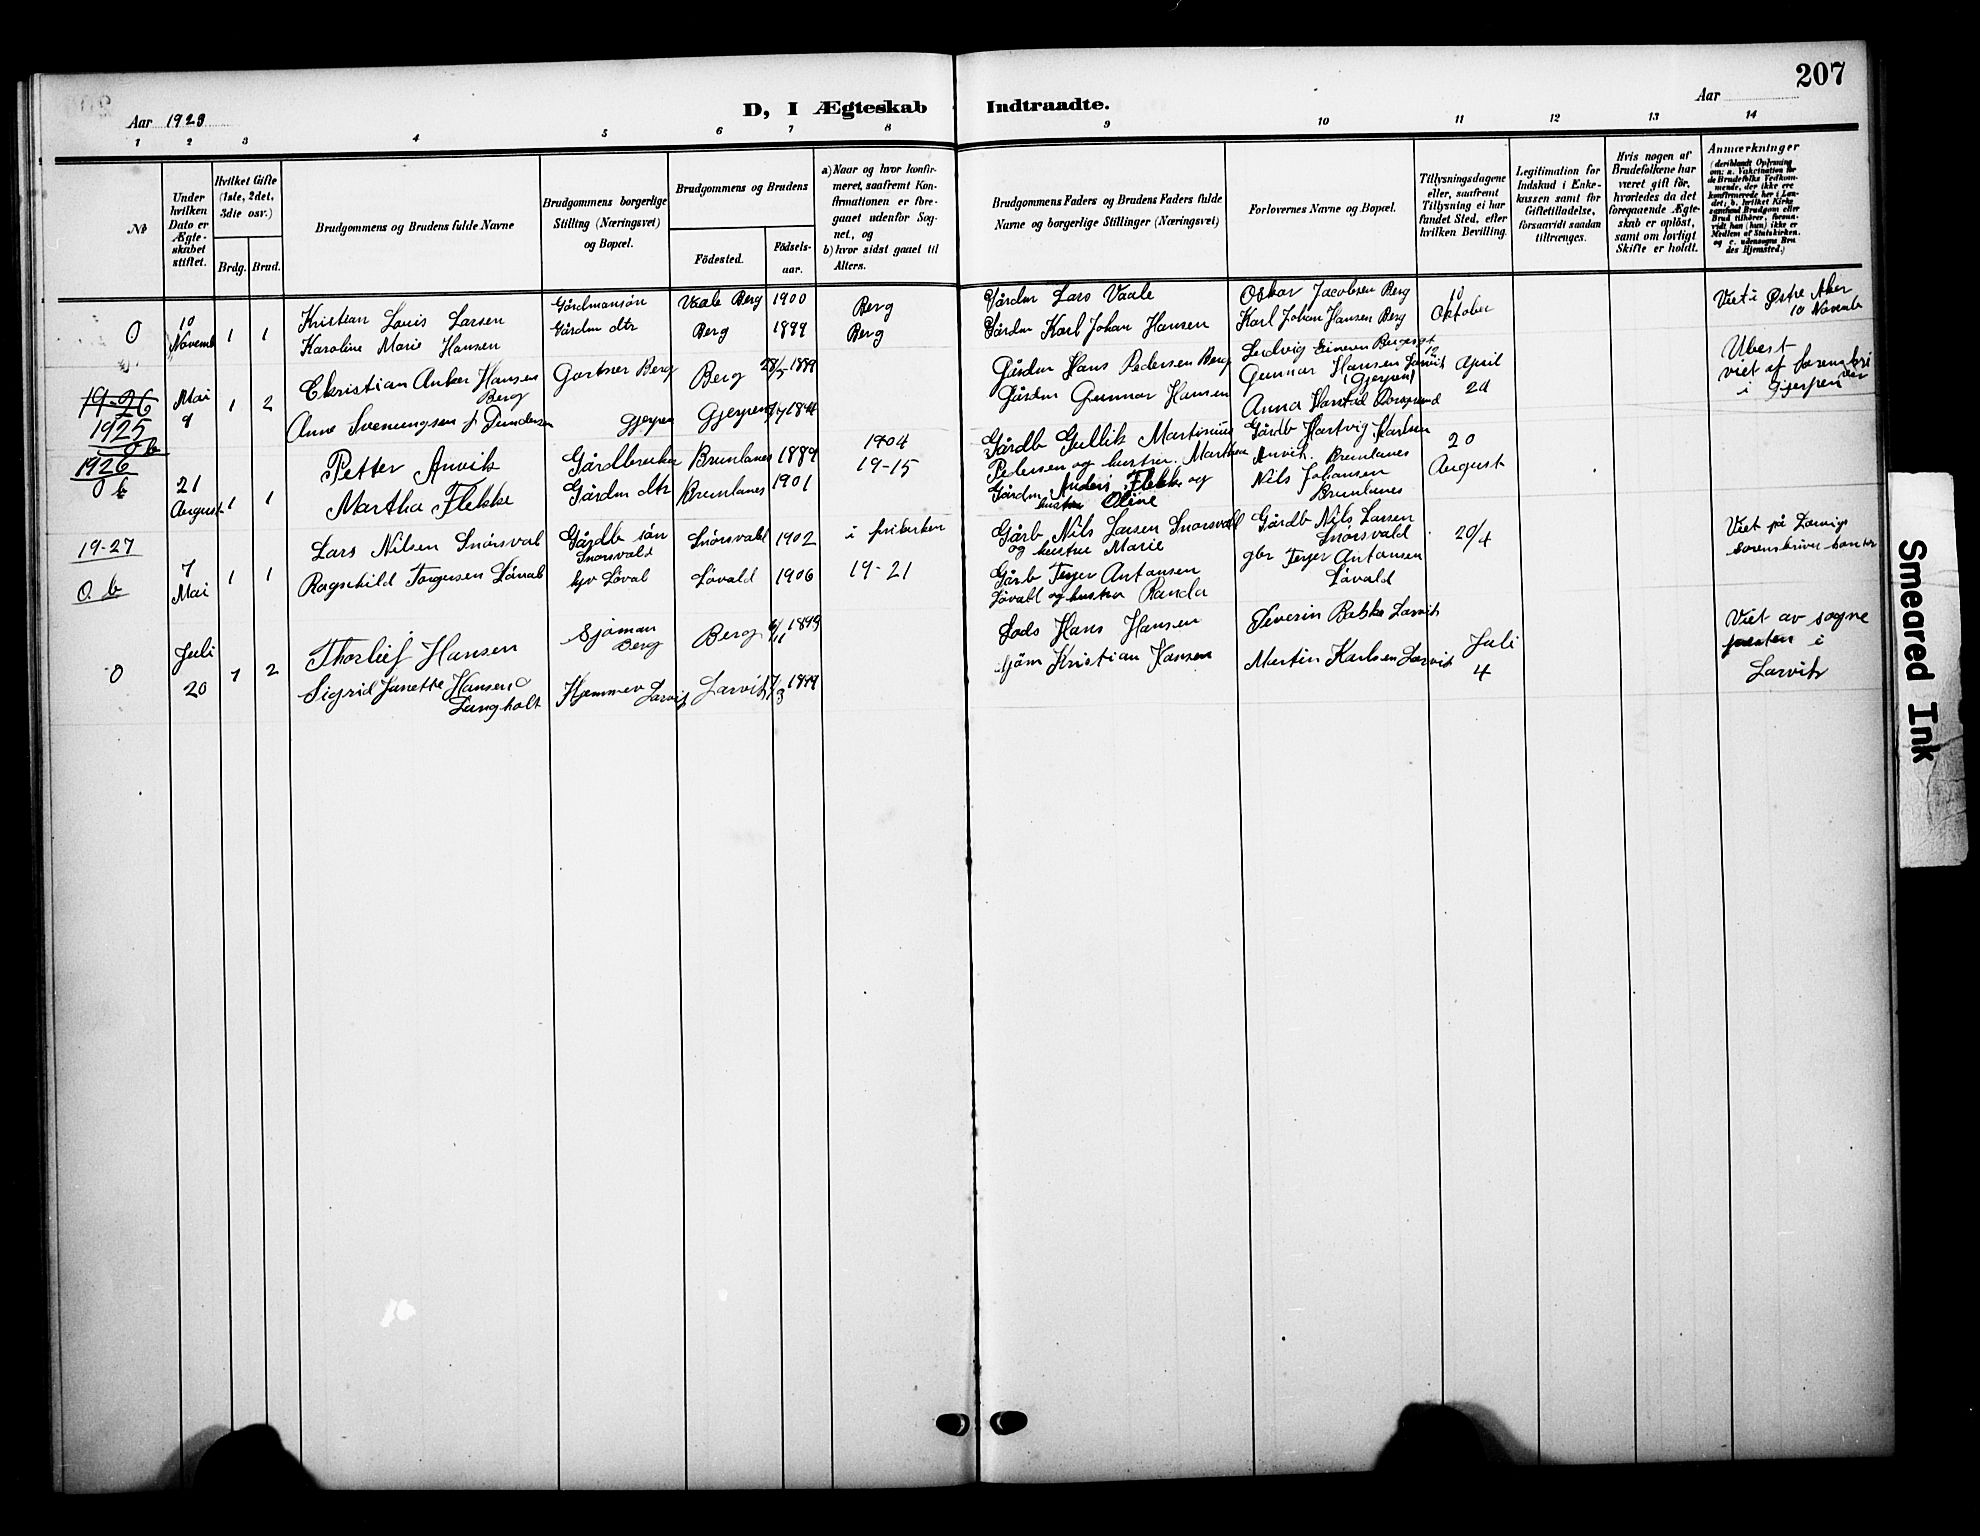 207
D, I Ægteskab Indtraadte.
Aar 1923
Aar
1 2 3 4 5 6 7 8 9 10 11 12 13 14
№
Under hvilken Dato er Ægteskabet stiftet.
Hvilket Gifte (1ste, 2det, 3die osv.)
Brdg. Brud.
Brudgommens og Brudens fulde Navne
Brudgommens borgerlige Stilling (Næringsvei) og Bopæl.
Brudgommens og Brudens
Fødested.
Fødselsaar.
a) Naar og hvor konfirmeret, saafremt Konfirmationen er foregaaet udenfor Sognet, og
b) hvor sidst gaaet til Alters.
Brudgommens Faders og Brudens Faders fulde Navne og borgerlige Stillinger (Næringsvei)
Forlovernes Navne og Bopæl.
Tillysningsdagene eller, saafremt Tillysning ei har fundet Sted, efter hvilken Bevilling.
Legitimation for Indskud i Enkekassen samt for Giftetilladelse, forsaavidt saadan tiltrænges.
Hvis nogen af Brudefolkene har været gift før, hvorledes da det foregaaende Ægteskab er opløst, samt om lovligt Skifte er holdt.
Anmærkninger
0 10 Novemb 1 1
Kristian Louis Larsen Gårdmansøn Vaale Berg 1900 Berg Gårdm Lars Vaale Oskar Jacobsen Berg 10 Oktober Viet i Østre Aker 10 Novembe
Karoline Marie Hansen Gårdm dtr Berg 1899 Berg Gårdm Karl Johan Hansen Karl Johan Hansen Berg
19-26
1925
Mai 9 1 2
Christian Anker Hansen Berg Gartner Berg Berg 28/5 1899 Gårdm Hans Pedersen Berg Ludvig April 2d Ubest
viet af sorenskriver i Gjerpen
Anne Svenungsen f Gundersen Gjerpen Gjerpen Gårdm Gunnar Hansen Gunnar Hansen Larvik (Gjerpen)
Anna Harstad
1926
0 b 21 August 1 1
Petter Anvik Gårdbruker Brunlanes 1889 1904 Gårdb Gullik Martinius Pedersen og hustru Marthea Gårdb Hartvig Karlsen Anvik. Brunlanes 20 August
Martha Flekke Gårdm dtr Brunlanes 1901 19-15 Gårdm Anders Flekke og hustru Oline Nils Johansen Brunlanes
19-27
0. b 7 Mai 1 1
Lars Nilsen Snørsval Gårdb søn Snorsvald Snörsvald 1902 i frikirken Gårb Nils Larsen Snorsvald og hustru Marie Gårdb Nils Larsen Snørsvald 20/4 Viet på Larvigs sorenskriver
Ragnhild Torgersen Løvald Løval Løvald 1906 19-21 Gårb Terjer Antonsen Løvald og hustru Randa gbr Terjer Antonsen Løvald
0 Juli 20 1 2
Thorleif Hansen Sjøman Berg Berg 6/11 1899 Lods Hans Hansen Severin Bakke Larvik Juli 4 Viet av sogne
presten i
Larvik
Sigrid Janette Hansen Langholt Hammer Larvik Larvik 1899 Sjøm Kristian Hansen Martin Karlsen Larvik
Smeared Ink